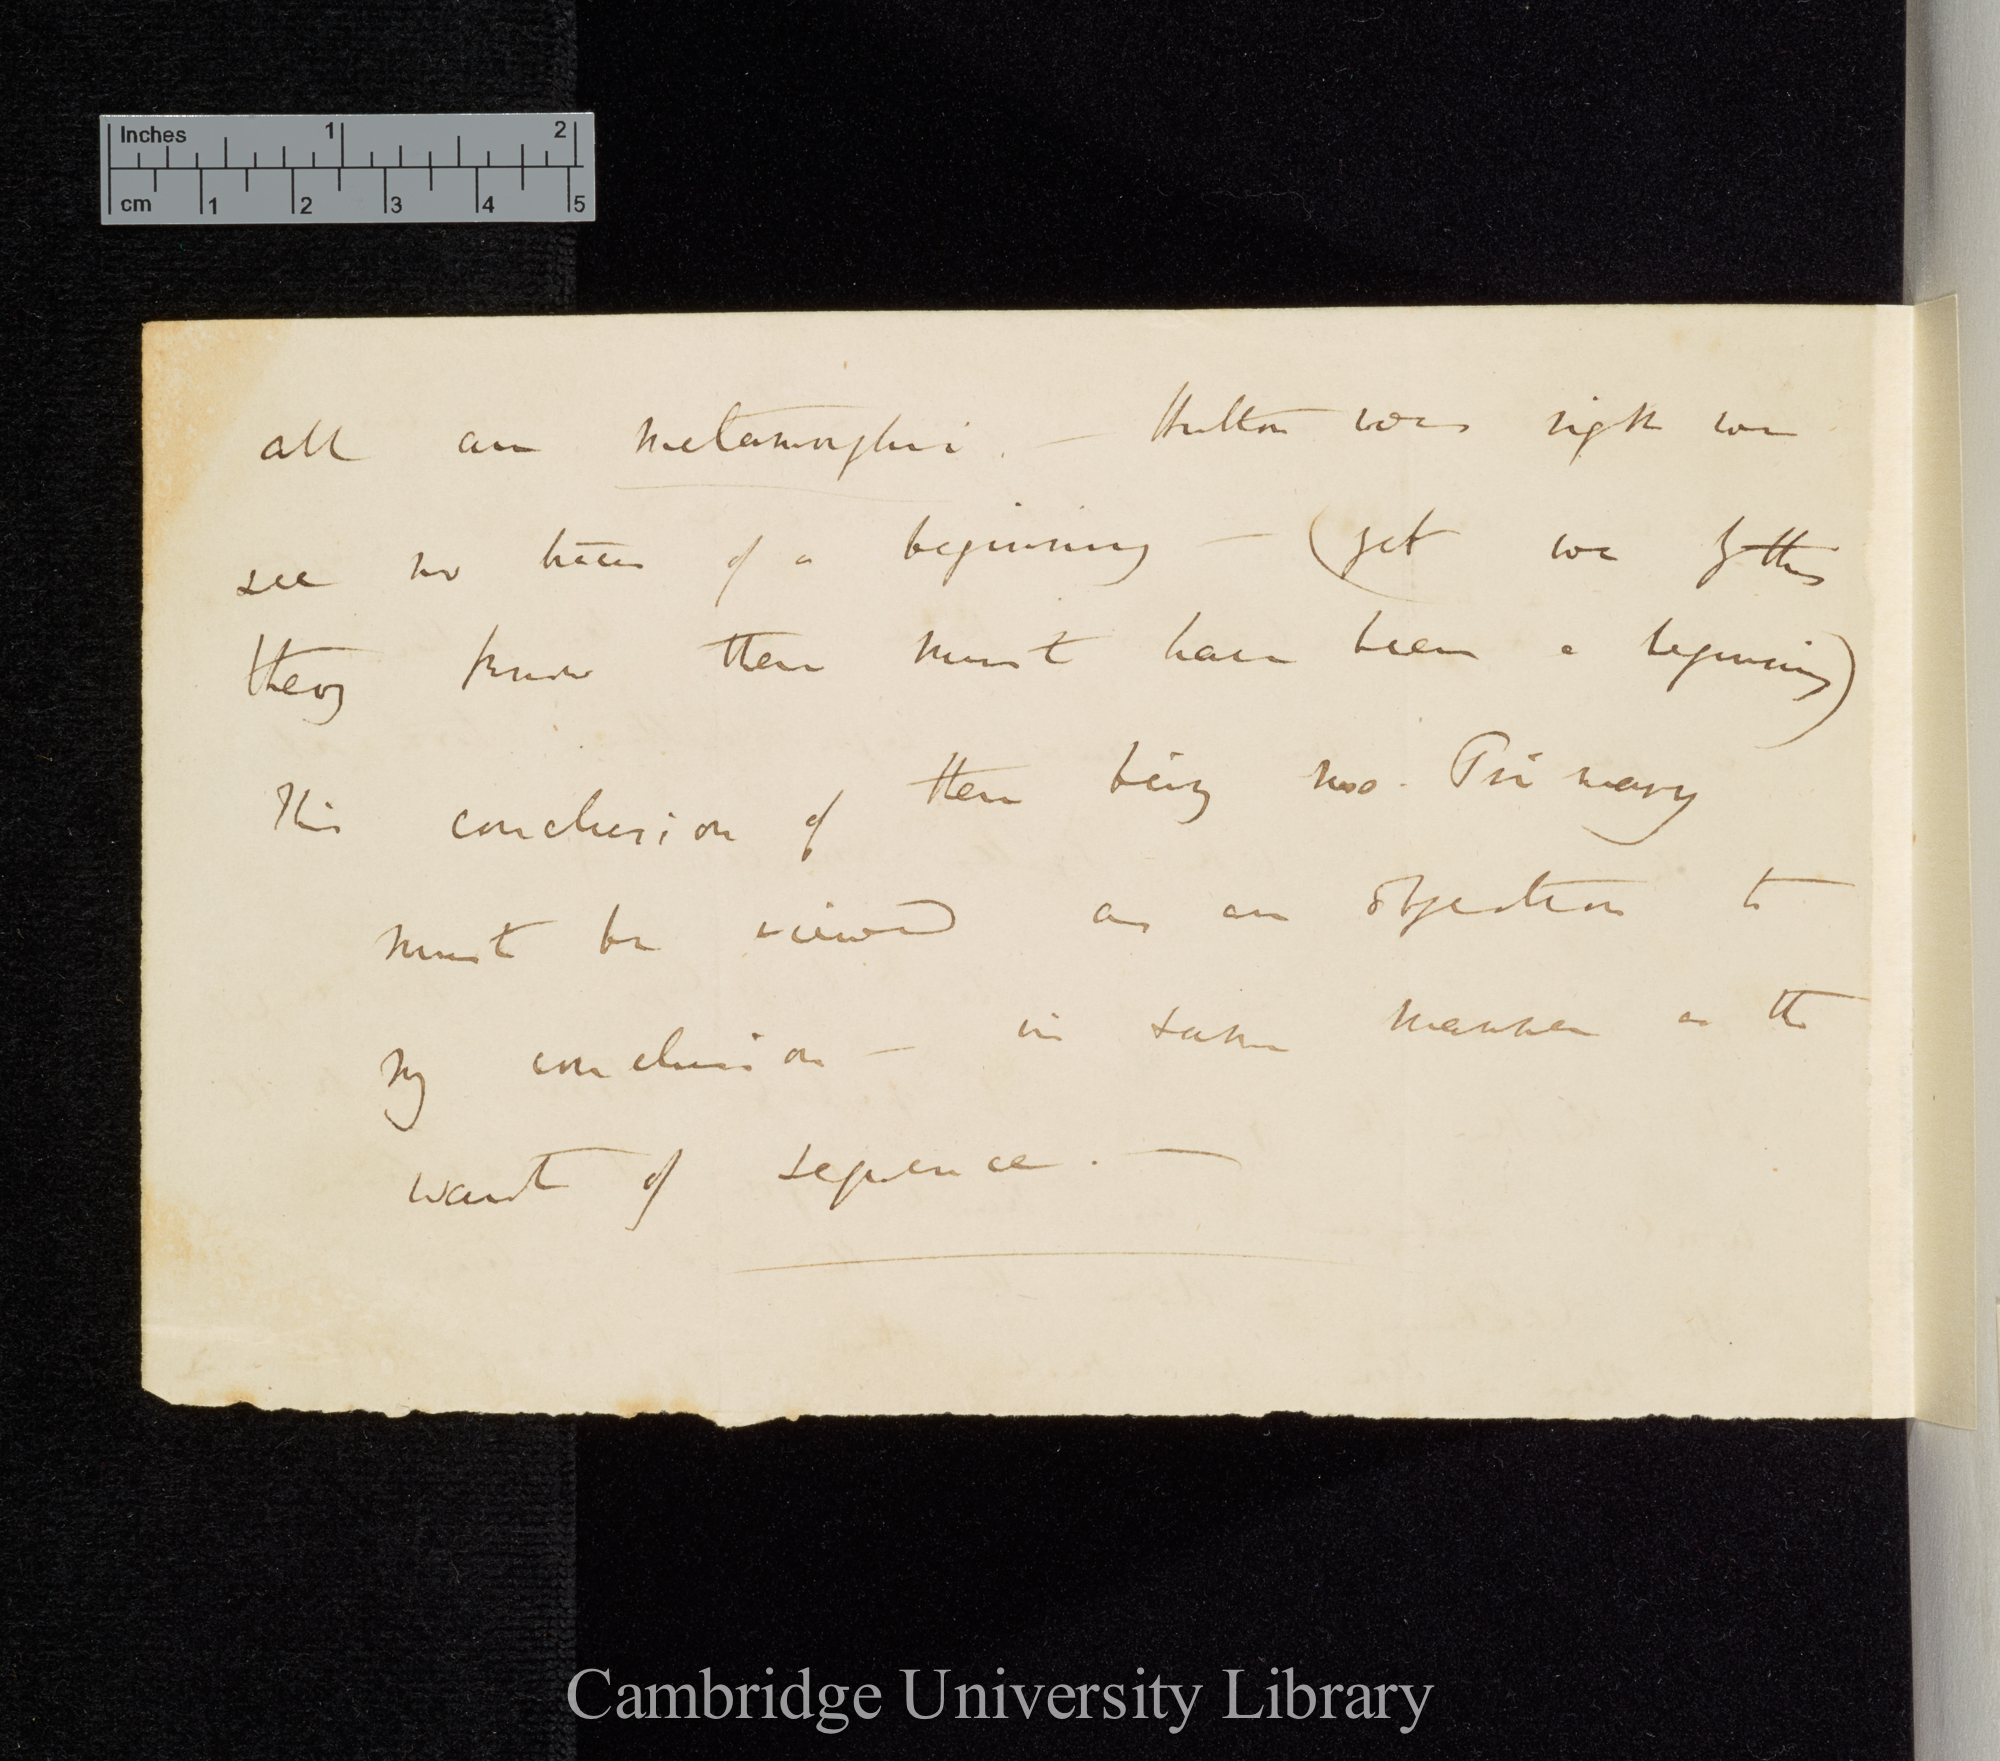 Inches 1 2
cm 1 2 3 4 5
all are metamorphic. — Hutton was right we
see no traces of a beginning — (yet we by this
theory know there must have been a beginning)
This conclusion of there being no Primary
must be viewed as an objection to
my conclusion — in same manner as the
want of sequence. —
Cambridge University Library